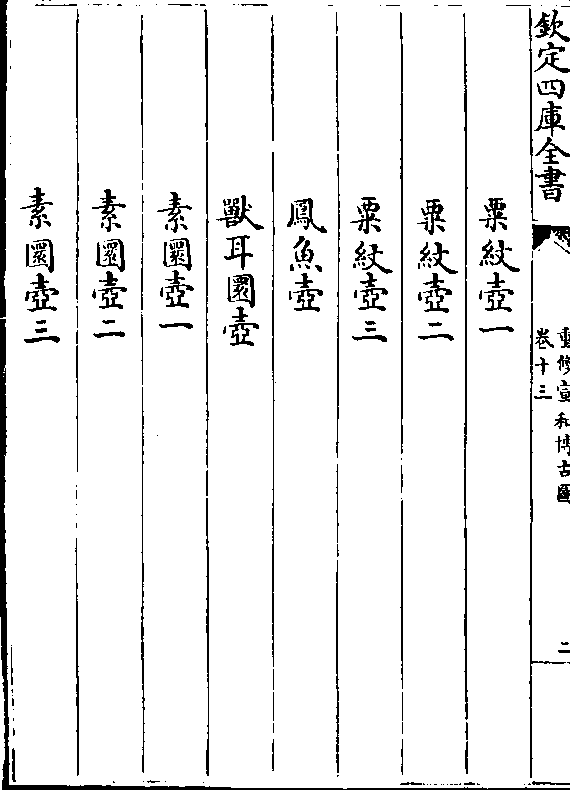 欽定四庫全書
重修宣和博古圖
卷十三
二
粟紋壺一
粟紋壺二
粟紋壺三
鳳魚壺
獸耳圜壺
素圜壺一
素圜壺二
素圜壺三